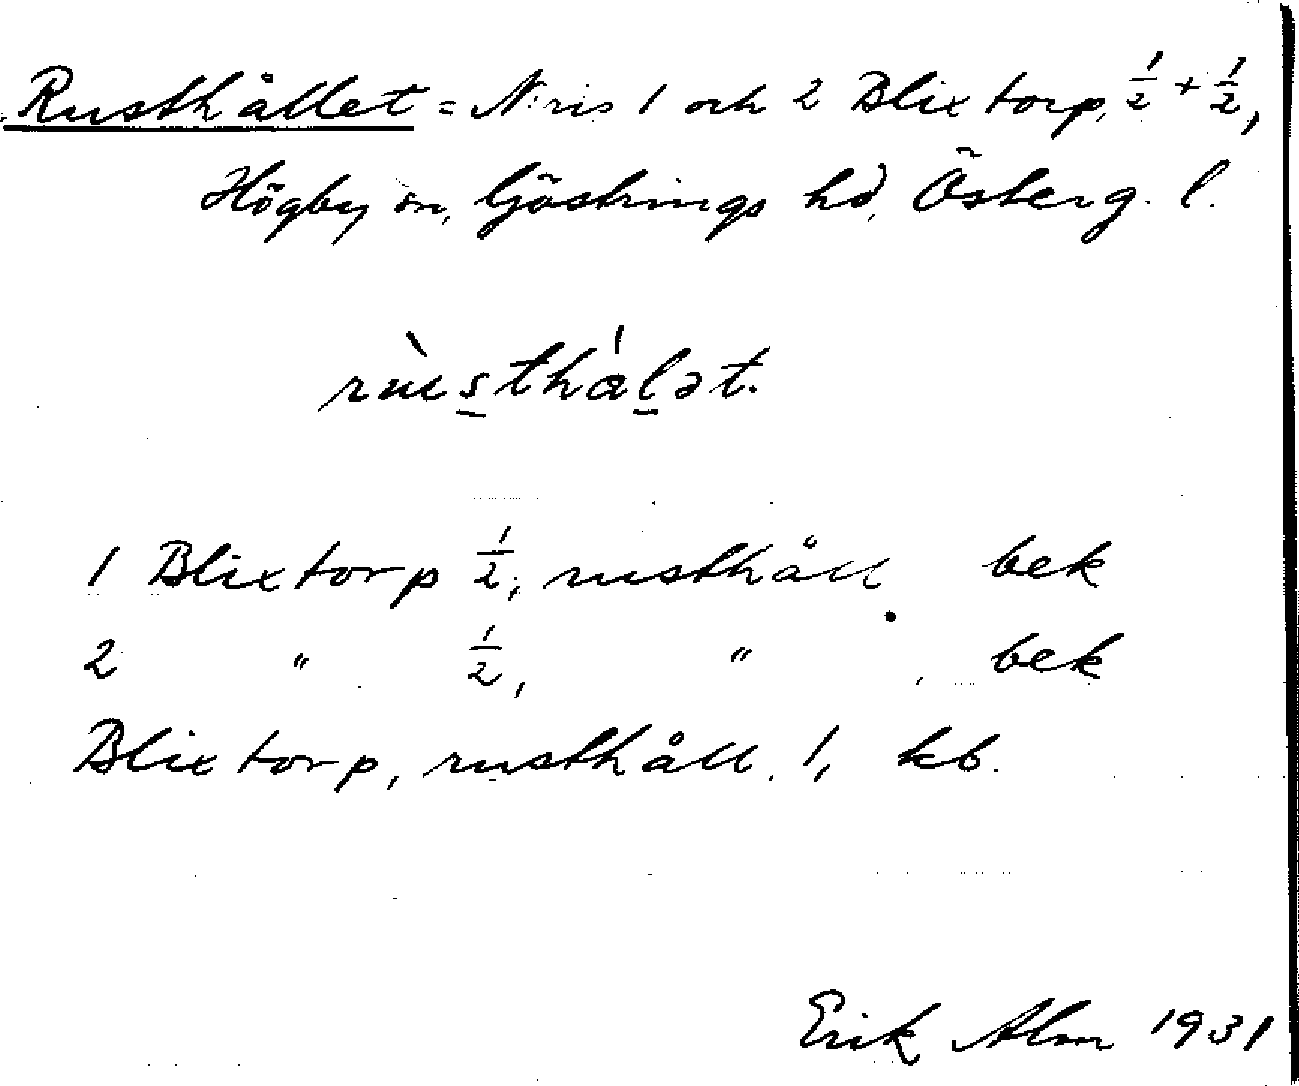 Rusthållet = N:ris 1 och 2 Blixtorp, 1/2 + 1/2,
Högby sn, Göstrings hd, Österg. l.
rùsthálət.
1 Blixtorp 1/2, rusthåll bek
2 " 1/2, " bek
Blixtorp, rusthåll, 1, kb.
Erik Alm 1931